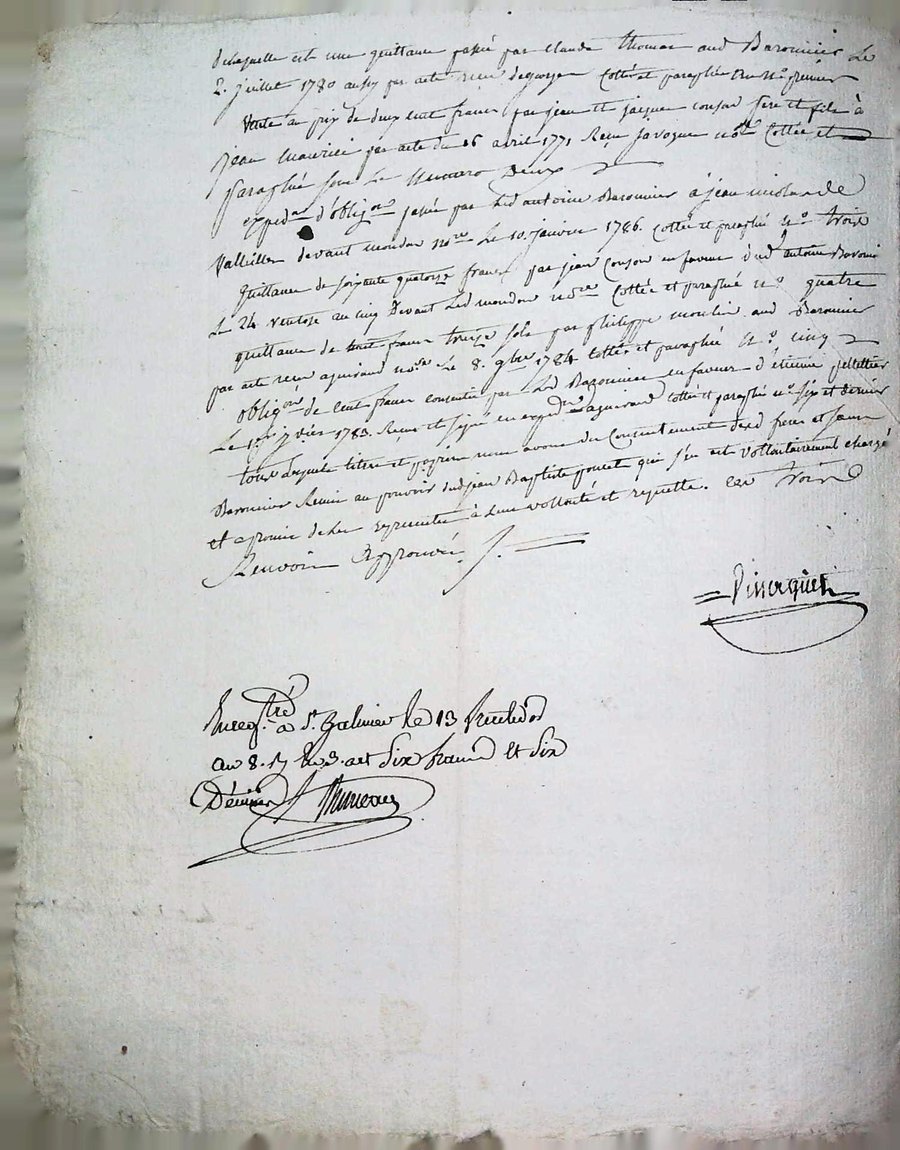 de laquelle est une quittance passée par Claude thomas aud Baronnier Le
2. juillet 1780 aussy par acte reçu degeorge Cottée et paraphée du n.o premier
Vente au prix de deux cent francs par jean et jacques consar père et fils à
jean Mauricie par acte du 16 avril 1771 Reçu Javogue no.re Cottée et
Paraphée sous Le Numero Deux
exped.on d'oblig.on passée par Led antoine Baronnier à jean de
Valleilles devant mondon no.re Le 10. janvier 1786. Cottée et paraphé n.o trois
Quittance de soixante quatorze francs par jean Consar en faveur dud antoine Baronnier
Le 24 ventose an cinq Devant Led mondon no.re Cottée et paraphée n.o quatre
quittance de huit francs treize sols par philippe moulin aud Baronnier
par acte reçu aguiraud no.re Le 8. 9bre 1784 Cottée et paraphée n.o Cinq
oblig.on de Cent francs consentie par Led Baronnier en faveur d'etienne pelletier
Le 1785. Reçue et signée en exped.on aguiraud cottée et paraphée n.o six et dernier
tous lesquels titres et papiers nous avons du Consentement desd freres et soeurs
Baronnier Remis au pouvoir dud jean Baptiste poncet qui s'en est vollontairement chargé
et a promis de Les representer à leur vollonté et requette. en trois
Renvois Approuvés
Enreg.tré à S.t Galmier le 13 fructidor
an 8. art six francs et six
Décimes